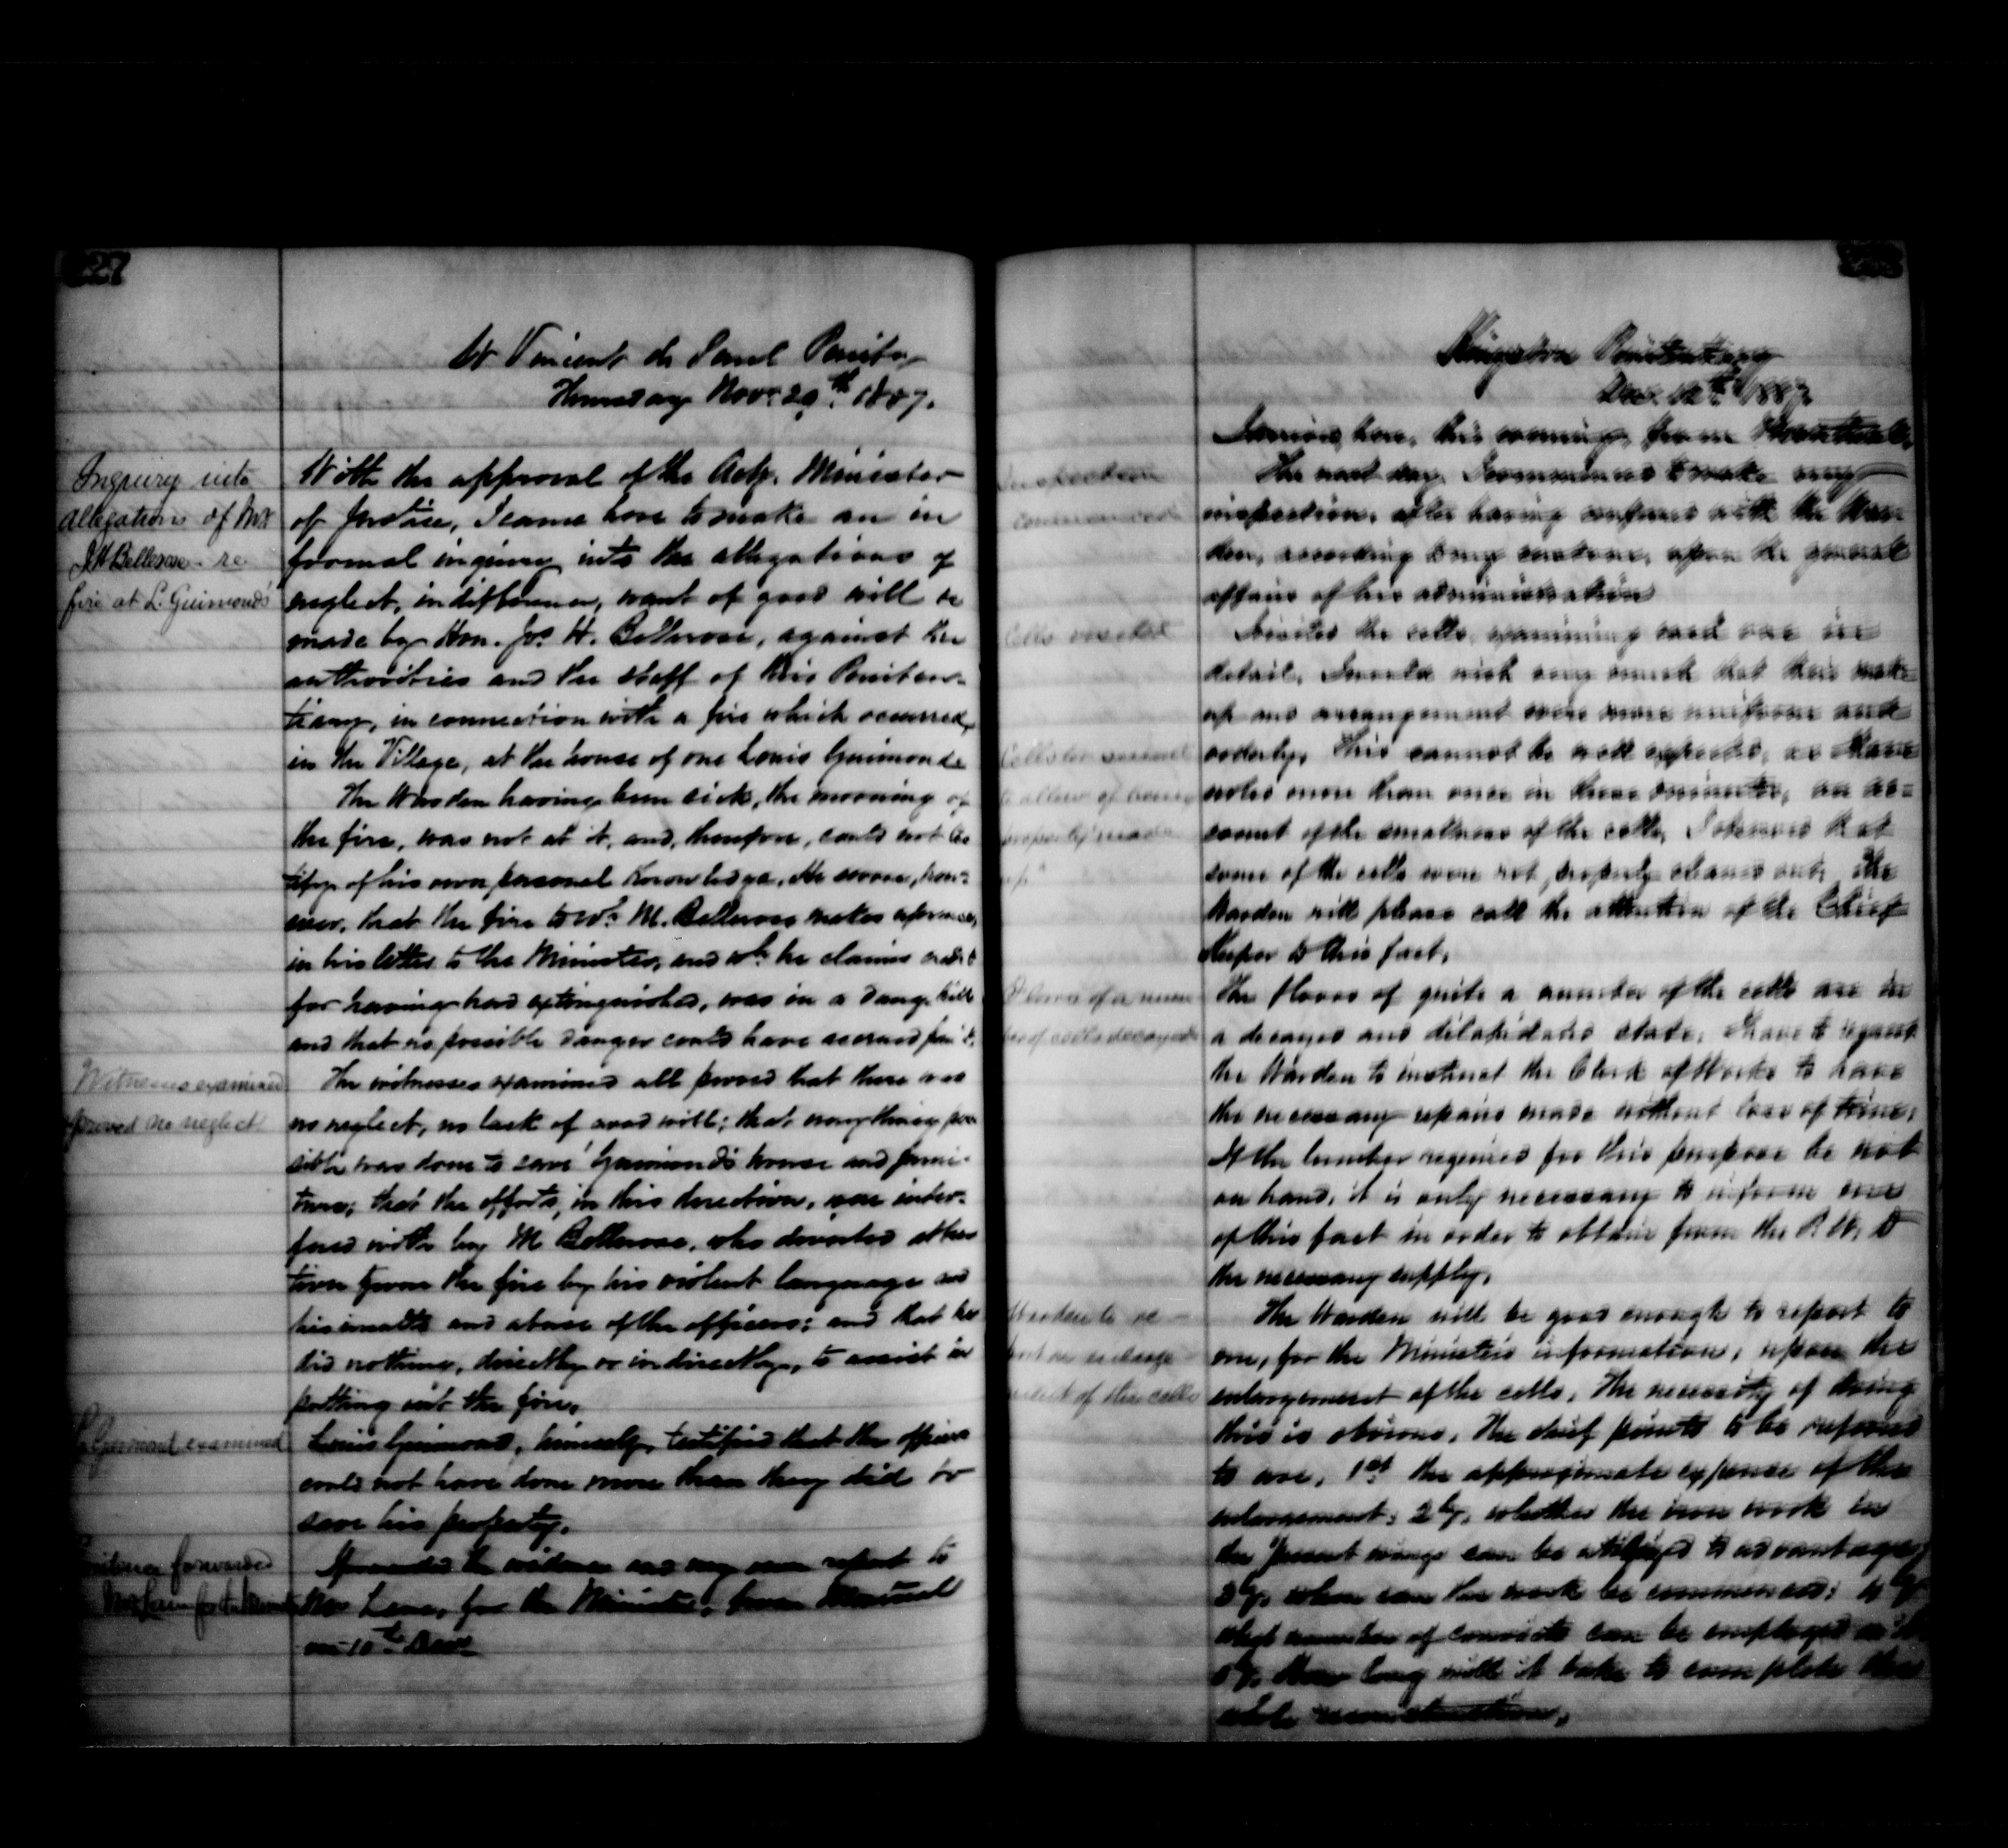 227
St Vincent de Paul Penity
Thursday Nov. 29th 1887.
Inquiry into
allegations of Mr
J H Bellerose re
fire at L. Guimond's
With the approval of the Actg. Minister
of Justice, I came here to make an in
formal inquiry into the allegations of
neglect, indifference, want of good will &c
made by Hon. Jos. H. Bellerose, against the
authorities and the staff of this Peniten-
tiary, in connection with a fire which occurred,
in the Village, at the house of one Louis Guimond.
The Warden having been sick, the morning of
the fire, was not at it, and, therefore, could not tes
tify of his own personal knowledge. He swore, how-
ever, that the fire to wh. M. Bellerose makes reference,
in his letter to the Minister, and wh. he claims credit
for having had extinguished, was in a dung hill
and that no possible danger could have accrued from it.
Witnesses examined
proved no neglect
The witnesses examined all proved that there was
no neglect, no lack of good will; that everything pos
sible was done to save Guimond's house and furni-
ture; that the efforts, in this direction, were inter-
fered with by M Bellerose, who diverted atten
tion from the fire by his violent language and
his insults and abuse of the officers; and that he
did nothing, directly or indirectly, to assist in
putting out the fire.
L. Guimond examined
Louis Guimond, himself, testified that the officers
could not have done more than they did to
save his property.
Evidence forwarded
Mr Lane for the Minister
I forwarded the evidence and my own report to
Mr Lane, for the Minister, from Montreal
on 10th Dec.
Kingston Penitentiary
Dec. 12th 1887.
I arrived here, this evening, from Montreal.
Inspection
commenced
The next day, I commenced to make my
inspection, after having conferred with the War
den, according to my custom, upon the general
affairs of his administration
Cells visited
I visited the cells, examining each one in
detail. I would wish very much that their make
up and arrangement were more uniform and
Cells too small
to allow of being
properly made
up
orderly. This cannot be well expected, as I have
noted more than once in these minutes, on ac-
count of the smallness of the cells. I observed that
some of the cells were not properly cleaned out. The
Warden will please call the attention of the Chief
Keeper to this fact.
Floors of a num
ber of cells decayed
The floors of quite a number of the cells are in
a decayed and dilapidated state. I have to request
the Warden to instruct the Clerk of Works to have
the necessary repairs made without loss of time.
If the lumber required for this purpose be not
on hand, it is only necessary to inform me
of this fact in order to obtain from the P. W. D
the necessary supply.
Warden to re
port on enlarge
ment of the cells
The Warden will be good enough to report to
me, for the Minister's information, upon the
enlargement of the cells. The necessity of doing
this is obvious. The chief points to be referred
to are, 1st the approximate expense of the
enlargement; 2ly. whether the iron work in
the present wings can be utilized to advantage;
3ly. when can the work be commenced; 4ly
what number of convicts can be employed at it
5ly. How long will it take to complete the
whole reconstruction.